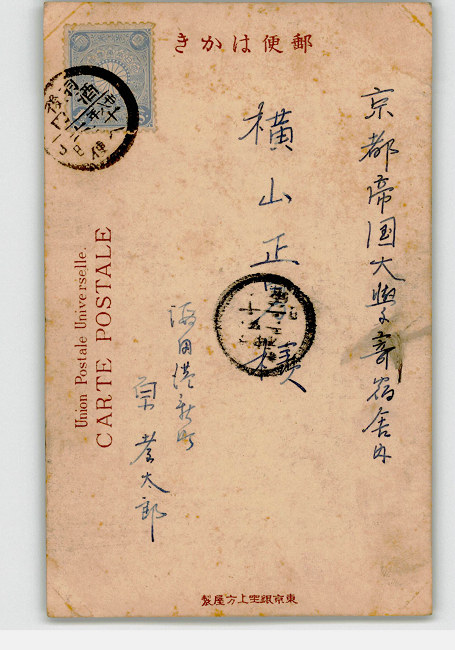 郵便はかき
京都帝国大学寄宿舎内
横山正
様
酒田港新町
京 孝太郎
Union Postale Universelle.
CARTE POSTALE
東京銀座上方屋製